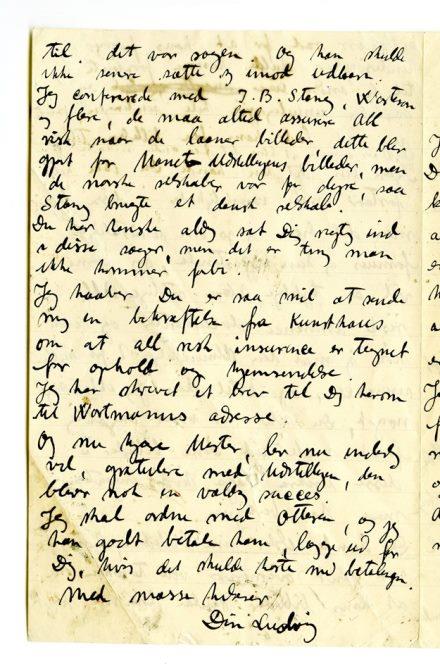 til. det var sagen. Og han skulde
ikke senere sætte sig imod udlaan.
Jeg confererede med J. B. Stang, Wortman
og flere, de maa altid assurere All
risk naar de laaner billeder, dette blev
gjort for Monet Udstillingens billeder, men
de norske selskaber var for dyre, saa
Stang brugte et dansk selskab.
Du har kanske aldrig sat Dig rigtig ind
i disse sager, men det er ting man
ikke kommer forbi.
Jeg haaber Du er saa snil at sende
mig en bekræftelse fra Kunsthaus
om at all risk insurance er tegnet
for ophold og hjemsendelse.
Jeg har skrevet et brev til Dig herom
til Wortmanns adresse.
Og nu kjære Mester, lev nu inderlig
vel, gratulere med Udstillingen, den
blever nok en vældig succes.
Jeg skal ordne med Ottesen, og jeg
kan godt betale ham, lægge ud for
Dig, hvis det skulde haste med betalingen.
Med masse hilsener
Din Ludvig